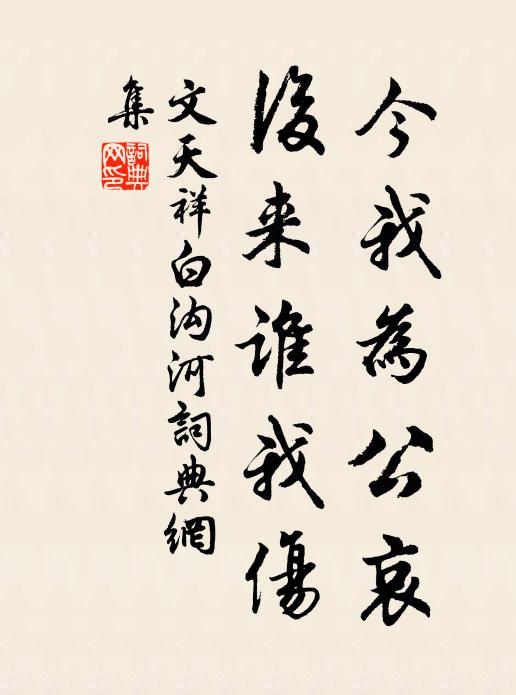 今我為公哀
後来誰我傷
文天祥白沟河詞典網
集
詞典
网印